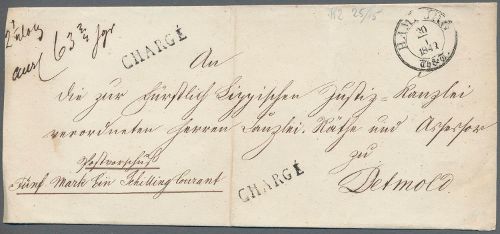 63 3/4 sgr
CHARGÉ
1R2 25/15
HAMBURG
20
Th&T.
An
die zur Fürstlich Lippischen Justiz-Kanzlei
verordneten Herren Kanzlei-Räthe und Assessor
zu
Detmold.
Postvorschuß
Fünf Mark Ein Schilling Courant
CHARGÉ